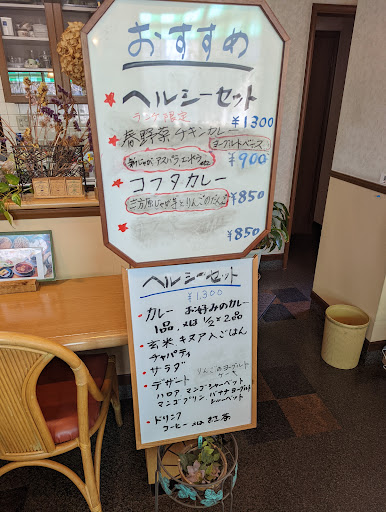 おすすめ
★ヘルシーセット
ランチ限定 ¥1300
★春野菜チキンカレー
ヨーグルトベース
新じゃが アスパラ エンドウ etc ¥900
★コフタカレー
三方原じゃが芋とりんごの ¥850
¥850
ヘルシーセット
¥1,300
・カレー お好みのカレー
1品 又は 1/2×2品
・玄米 キヌア入ごはん
チャパティ
・サラダ
・デザート りんごのヨーグルト
ケーキ
ハロア マンゴシャーベット
マンゴプリン バナナヨーグルト
シャーベット
・ドリンク
コーヒー 又は 紅茶